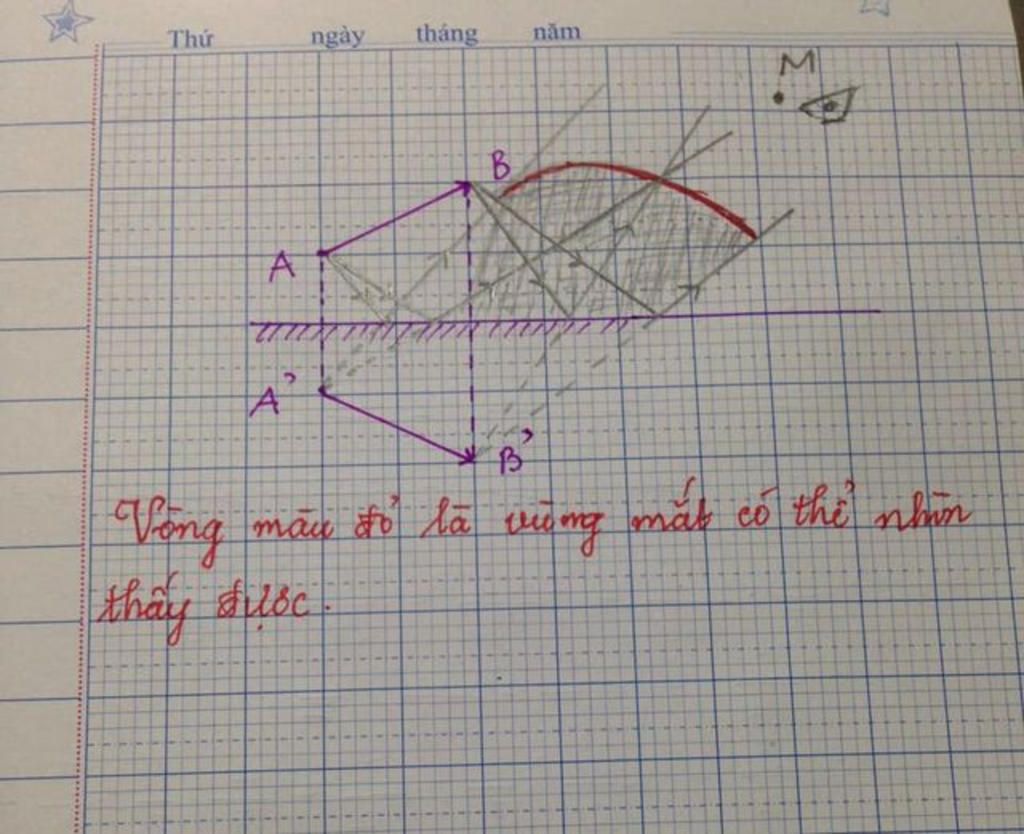 Thứ ngày tháng năm
M
B
A
A'
B'
Vòng màu đỏ là vùng mắt có thể nhìn
thấy được.